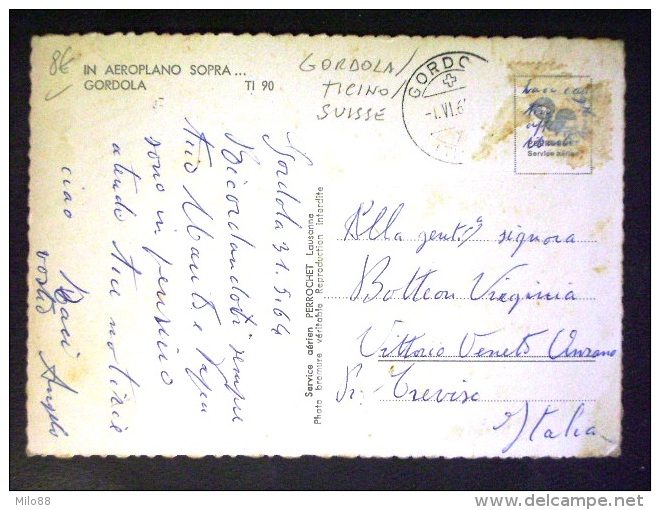 8€
IN AEROPLANO SOPRA...
GORDOLA TI 90
GORDOLA/
TICINO/
SUISSE
GORDO
-1.VI.6
PERROCHET
Service aérien
Gordola 31.5.64
Ricordandoti sempre
tuo
sono in pensiero
atendo tue notizie
ciao Baci Angelo
vostro
Service aérien PERROCHET Lausanne
Photo bromure véritable Reproduction interdite
Alla gent. signora
Botteon Virginia
Vittorio Veneto Anzano
Pr. Treviso
Italia
Milo88
www.delcampe.net